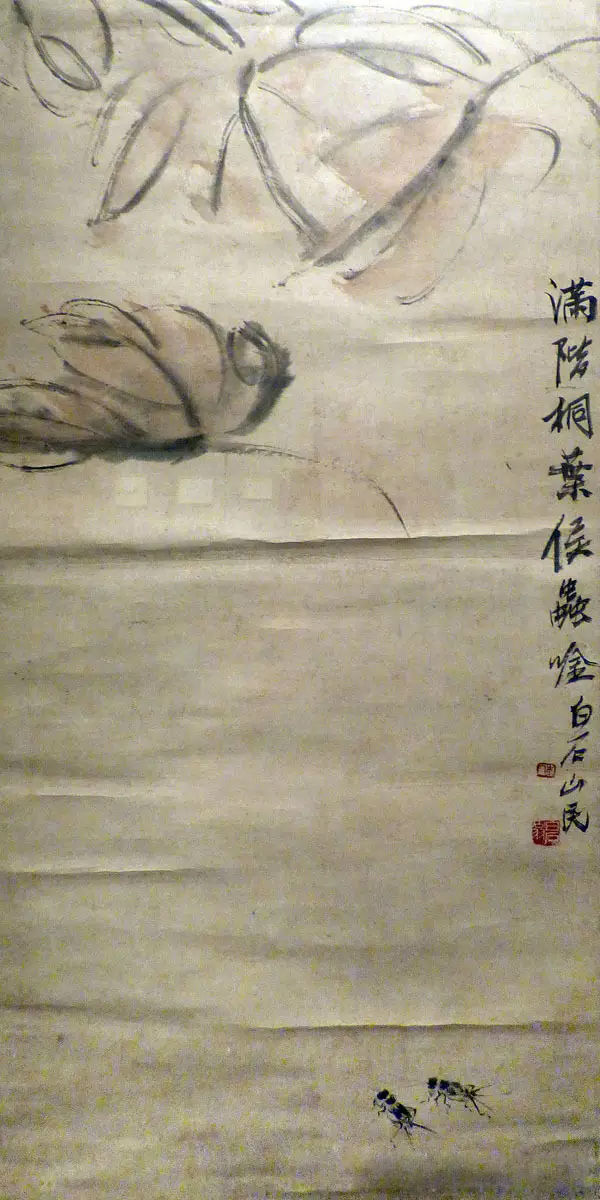 滿階桐葉候蟲唫
白石山民